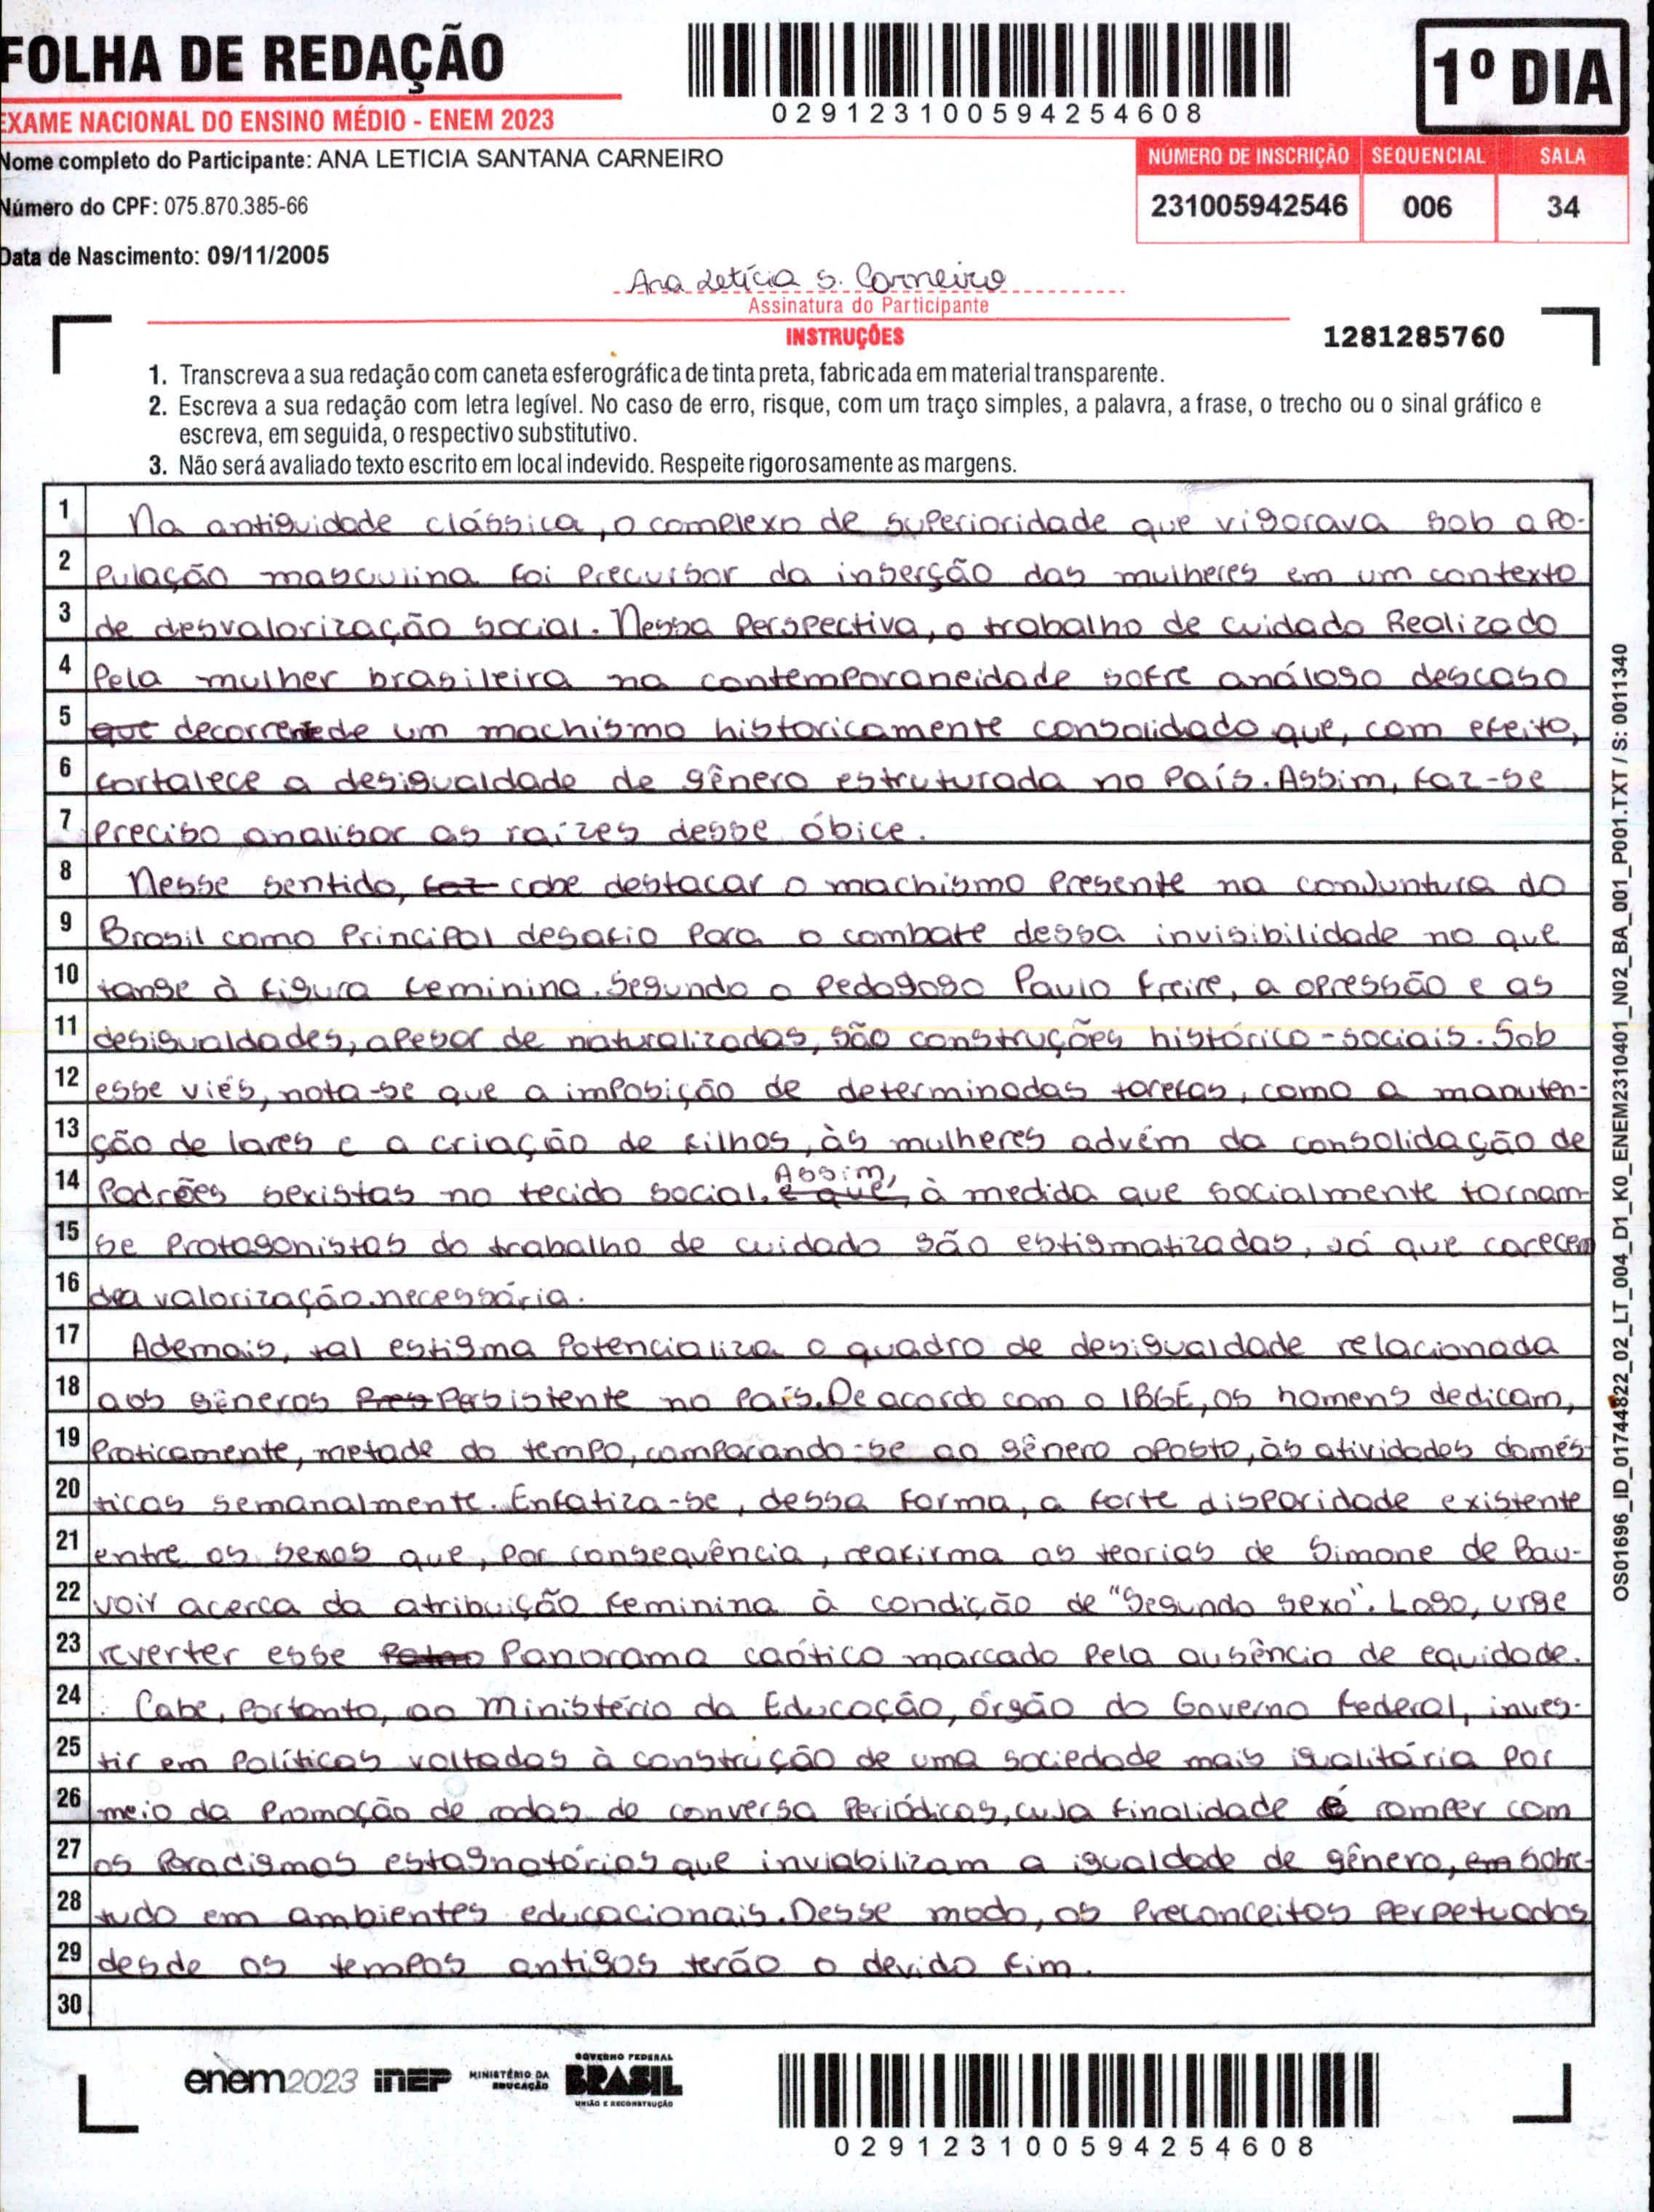 FOLHA DE REDAÇÃO
EXAME NACIONAL DO ENSINO MÉDIO - ENEM 2023
029123100594254608
1º DIA
Nome completo do Participante: ANA LETICIA SANTANA CARNEIRO
Número do CPF: 075.870.385-66
Data de Nascimento: 09/11/2005
NÚMERO DE INSCRIÇÃO SEQUENCIAL SALA
231005942546 006 34
Ana Letícia S. Carneiro
Assinatura do Participante
INSTRUÇÕES
1281285760
1. Transcreva a sua redação com caneta esferográfica de tinta preta, fabricada em material transparente.
2. Escreva a sua redação com letra legível. No caso de erro, risque, com um traço simples, a palavra, a frase, o trecho ou o sinal gráfico e
escreva, em seguida, o respectivo substitutivo.
3. Não será avaliado texto escrito em local indevido. Respeite rigorosamente as margens.
1 Na antiguidade clássica, o complexo de superioridade que vigorava sob a po-
2 pulação masculina foi precursor da inserção das mulheres em um contexto
3 de desvalorização social. Nessa perspectiva, o trabalho de cuidado Realizado
4 pela mulher brasileira na contemporaneidade sofre análogo descaso
5 que decorrente de um machismo historicamente consolidado que, com efeito,
6 fortalece a desigualdade de gênero estruturada no país. Assim, faz-se
7 preciso analisar as raízes desse óbice.
8 Nesse sentido, faz cabe destacar o machismo presente na conjuntura do
9 Brasil como principal desafio para o combate dessa invisibilidade no que
10 tange à figura feminina. Segundo o pedagogo Paulo Freire, a opressão e as
11 desigualdades, apesar de naturalizadas, são construções histórico-sociais. Sob
12 esse viés, nota-se que a imposição de determinadas tarefas, como a manuten-
13 ção de lares e a criação de filhos, às mulheres advém da consolidação de
14 padrões sexistas no tecido social. e que, Assim, à medida que socialmente tornam-
15 se protagonistas do trabalho de cuidado são estigmatizadas, já que carecem
16 da valorização necessária.
17 Ademais, tal estigma potencializa o quadro de desigualdade relacionada
18 aos gêneros Pres persistente no país. De acordo com o IBGE, os homens dedicam,
19 praticamente, metade do tempo, comparando-se ao gênero oposto, às atividades domés-
20 ticas semanalmente. Enfatiza-se, dessa forma, a forte disparidade existente
21 entre os sexos que, por consequência, reafirma as teorias de Simone de Bau-
22 voir acerca da atribuição feminina à condição de "Segundo sexo". Logo, urge
23 reverter esse panorama caótico marcado pela ausência de equidade.
24 Cabe, portanto, ao Ministério da Educação, órgão do Governo Federal, inves-
25 tir em políticas voltadas à construção de uma sociedade mais igualitária por
26 meio da promoção de rodas de conversa periódicas, cuja finalidade é romper com
27 os paradigmas estagnatórios que inviabilizam a igualdade de gênero, em sobre-
28 tudo em ambientes educacionais. Desse modo, os preconceitos perpetuados
29 desde os tempos antigos terão o devido fim.
30
OS01696_ID_01744822_02_LT_004_D1_K0_ENEM2310401_N02_BA_001_P001.TXT / S: 0011340
enem2023 inep MINISTÉRIO DA EDUCAÇÃO GOVERNO FEDERAL BRASIL UNIÃO E RECONSTRUÇÃO
029123100594254608